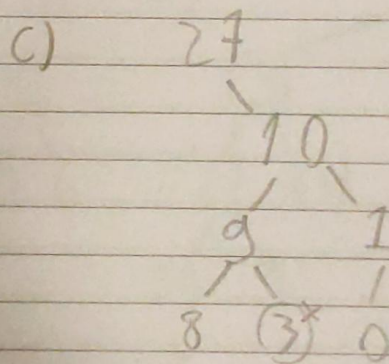 c) 27
10
9 1
8 (3)x 0